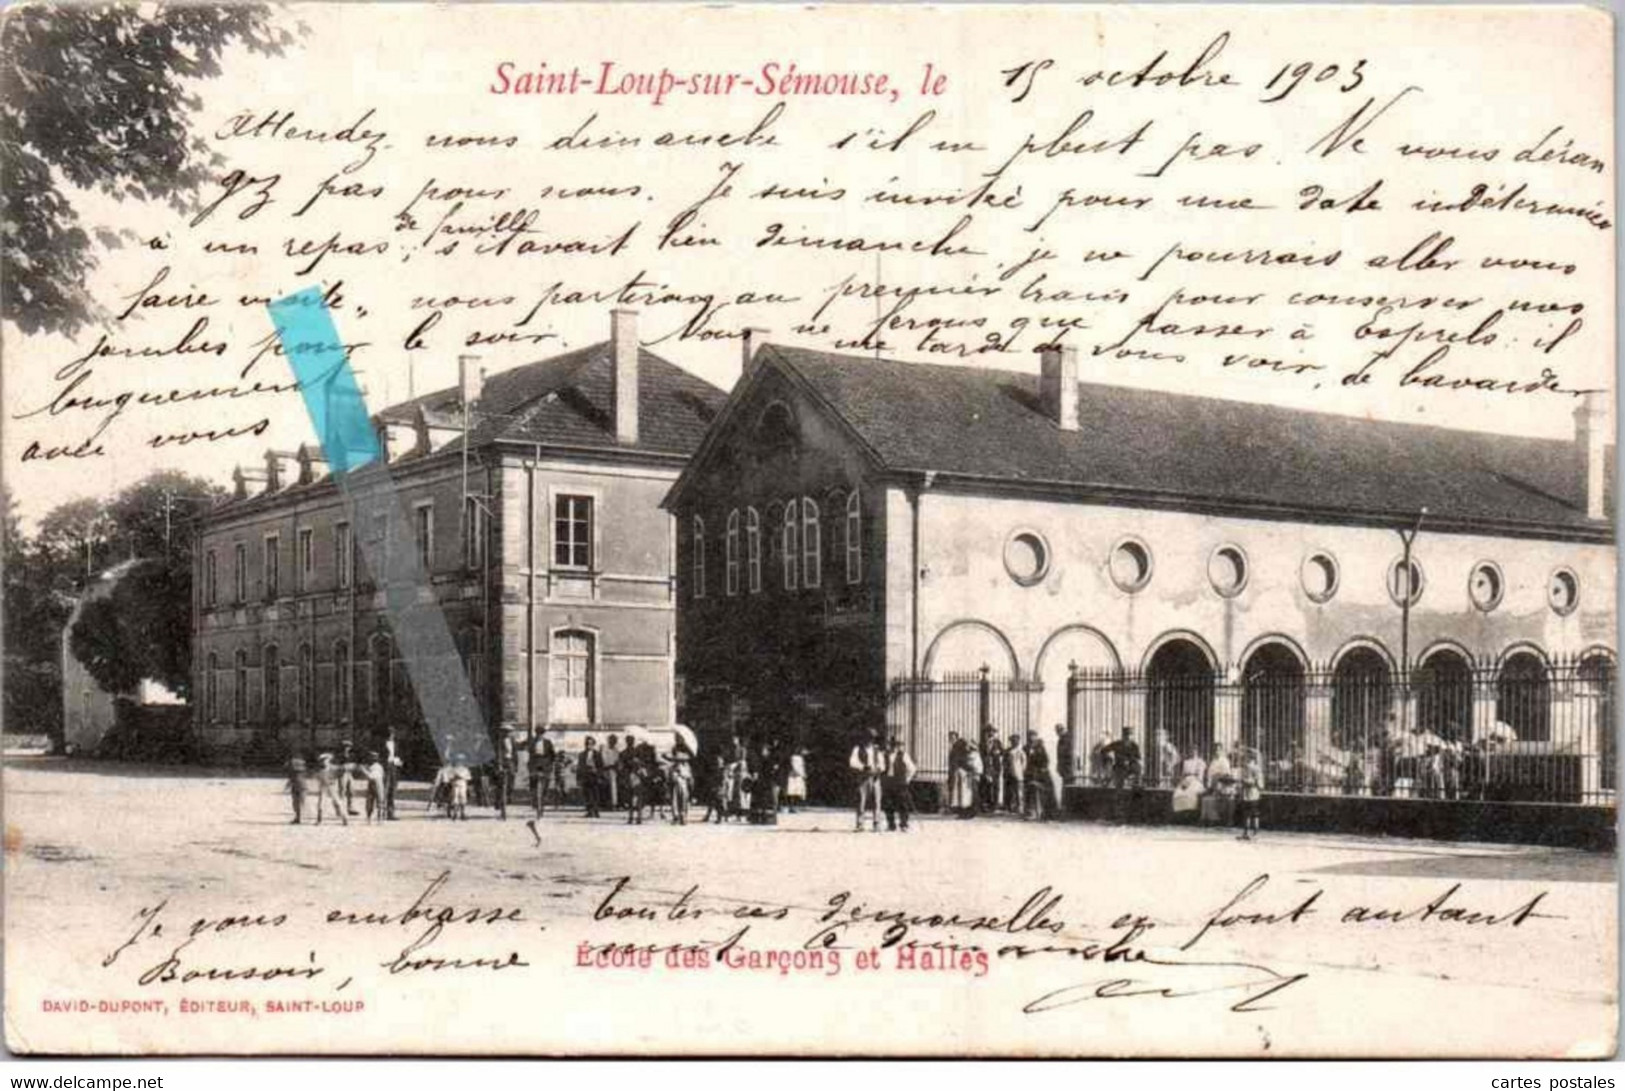 Saint-Loup-sur-Sémouse, le 15 octobre 1903
Attendez nous dimanche s'il ne pleut pas. Ne vous déran
gez pas pour nous. Je suis invité pour une date indéterminée
à un repas de famille; s'il avait lieu dimanche, je ne pourrais aller vous
faire visite, nous partirons au premier train pour conserver nos
jambes pour le soir. Nous ne ferons que passer à Esprels: il
me tarde de vous voir, de bavarder
longuement
avec vous
Je vous embrasse. Toutes ces demoiselles en font autant
Bonsoir, bonne nuit à Dimanche
École des Garçons et Halles
DAVID-DUPONT, ÉDITEUR, SAINT-LOUP
www.delcampe.net
cartes postales